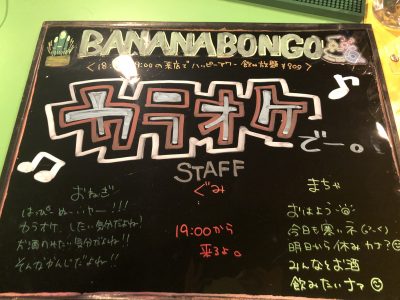 BANANABONGO
<18:00-19:00の来店でハッピーアワー 飲み放題 ¥900>
カラオケでー。
STAFF
おねぎ
はっぴーぬー…いやー!!!
カラオケ、したい気分だよね!
お酒のみたい気分だよね!!
そんなかんじだよね!!
ぐみ
19:00から
来るよ。
まちゃ
おはよう
今日も寒いネ
明日から休みカナ?
みんなとお酒
飲みたいナァ